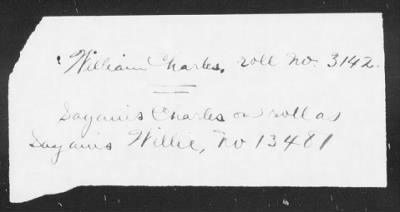 William Charles, roll no. 3142.
Sayanis Charles on roll as
Sayanis Willie, No 13481